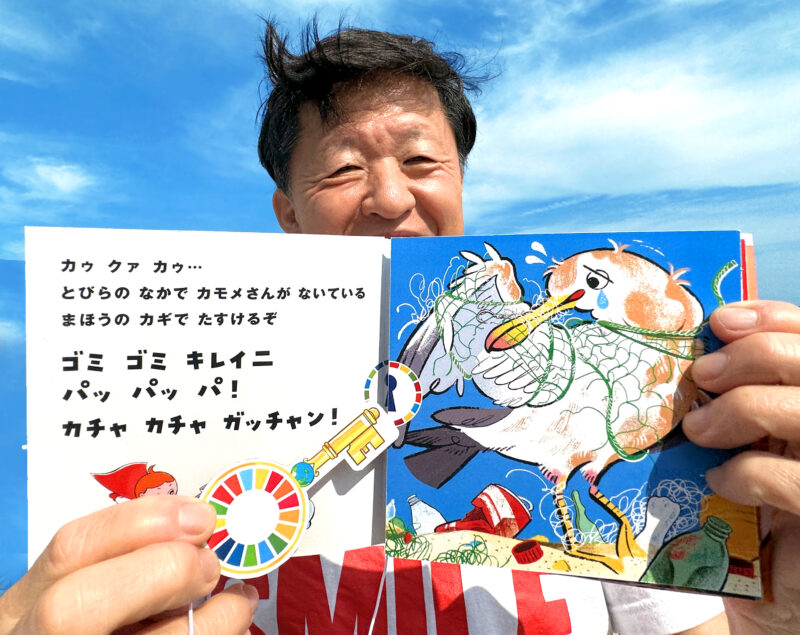 カゥ クァ カゥ…
とびらの なかで カモメさんが ないている
まほうの カギで たすけるぞ
ゴミ ゴミ キレイニ
パッ パッ パ！
カチャ カチャ ガッチャン！
SMILE